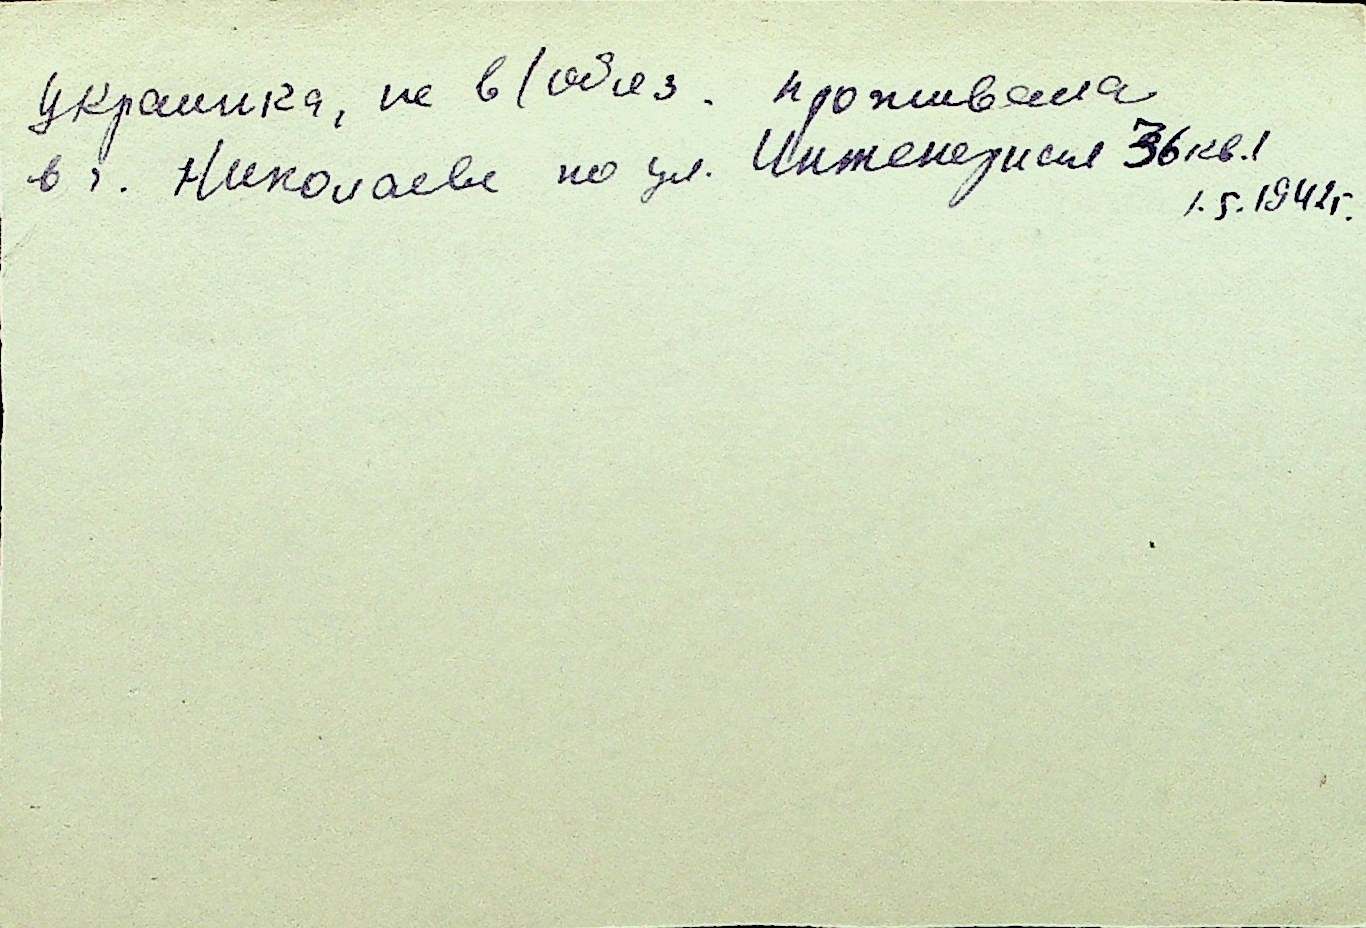 Украинка, не в/обяз. проживала
в г. Николаеве по ул. Инженерная 36 кв.1
1.5.1942г.